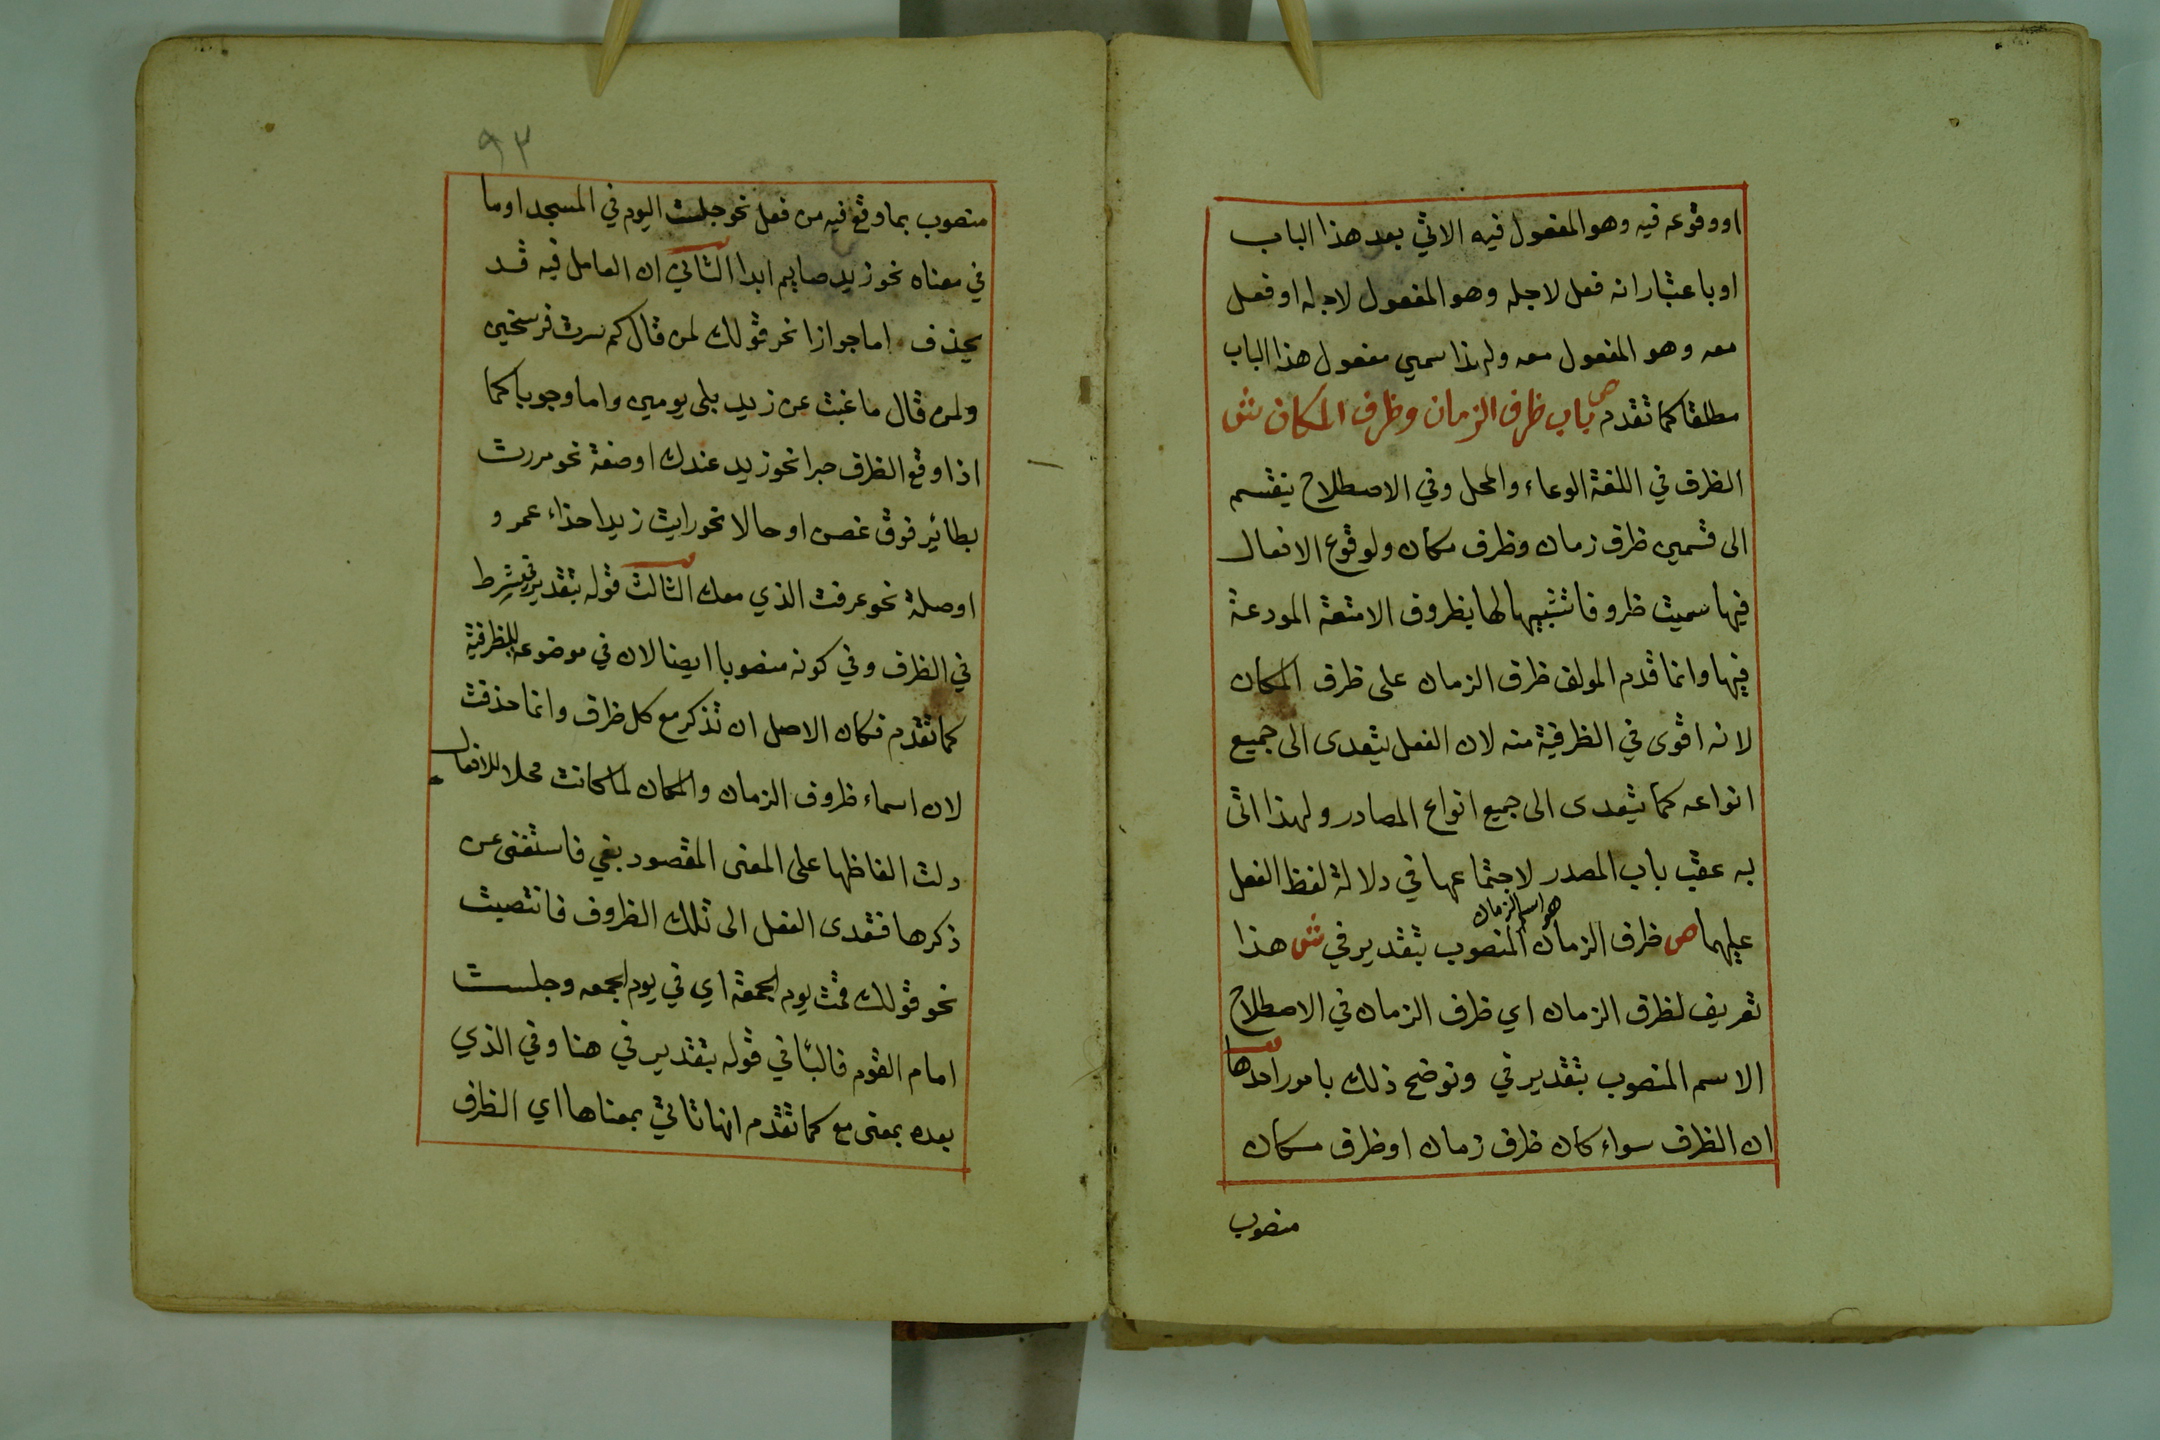 او وقوعه فيه وهو المفعول فيه الاتي بعد هذا الباب
او باعتبار انه فعل لاجله وهو المفعول لاجله او فعل
معه وهو المفعول معه ولهذا سمي مفعول هذا الباب
مطلقا كما تقدم ص باب ظرف الزمان وظرف المكان ش
الظرف في اللغة الوعاء والمحل وفي الاصطلاح ينقسم
الى قسمين ظرف زمان وظرف مكان ولوقوع الافعال
فيها سميت ظروفا تشبيها لها بظروف الامتعة المودعة
فيها وانما قدم المولف ظرف الزمان على ظرف المكان
لانه اقوى في الظرفية منه لان الفعل يتعدى الى جميع
انواعه كما يتعدى الى جميع انواع المصادر ولهذا اتى
به عقب باب المصدر لاجتماعها في دلالة لفظ الفعل
عليهما ص ظرف الزمان هو اسم الزمان المنصوب بتقدير في ش هذا
تعريف لظرف الزمان اي ظرف الزمان في الاصطلاح
الاسم المنصوب بتقدير في ونوضح ذلك بامور احدها
ان الظرف سواء كان ظرف زمان او ظرف مكان
منصوب
٩٣
منصوب بما وقع فيه من فعل نحو جلست اليوم في المسجد او ما
في معناه نحو زيد صايم ابدا الثاني ان العامل فيه قد
يحذف اما جوازا نحو قولك لمن قال كم سرت فرسخين
ولمن قال ما غبت عن زيد بلى يومين واما وجوبا كما
اذا وقع الظرف خبرا نحو زيد عندك او صفة نحو مررت
بطائير فوق غصن او حالا نحو رايت زيدا حذاء عمرو
او صلة نحو عرفت الذي معك الثالث قوله بتقدير في شرط
في الظرف وفي كونه منصوبا ايضا لان في موضوعه للظرفية
كما تقدم فكان الاصل ان تذكر مع كل ظرف وانما حذفت
لان اسماء ظروف الزمان والمكان لما كانت محلا للافعال
دلت الفاظها على المعنى المقصود بفي فاستغنى عن
ذكرها فتعدى الفعل الى تلك الظروف فانتصبت
نحو قولك قمت يوم الجمعة اي في يوم الجمعه وجلست
امام القوم فالباء في قوله بتقدير في هنا وفي الذي
بعده بمعنى مع كما تقدم انها تاتي بمعناها اي الظرف